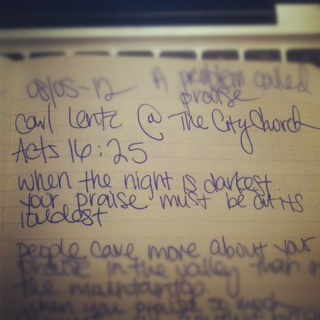 08/05-12 A problem called
praise
Carl Lentz @ The City Church
Acts 16:25
when the night is darkest
your praise must be at its
loudest
people care more about your
praise in the valley than
the mountaintop
when you praise